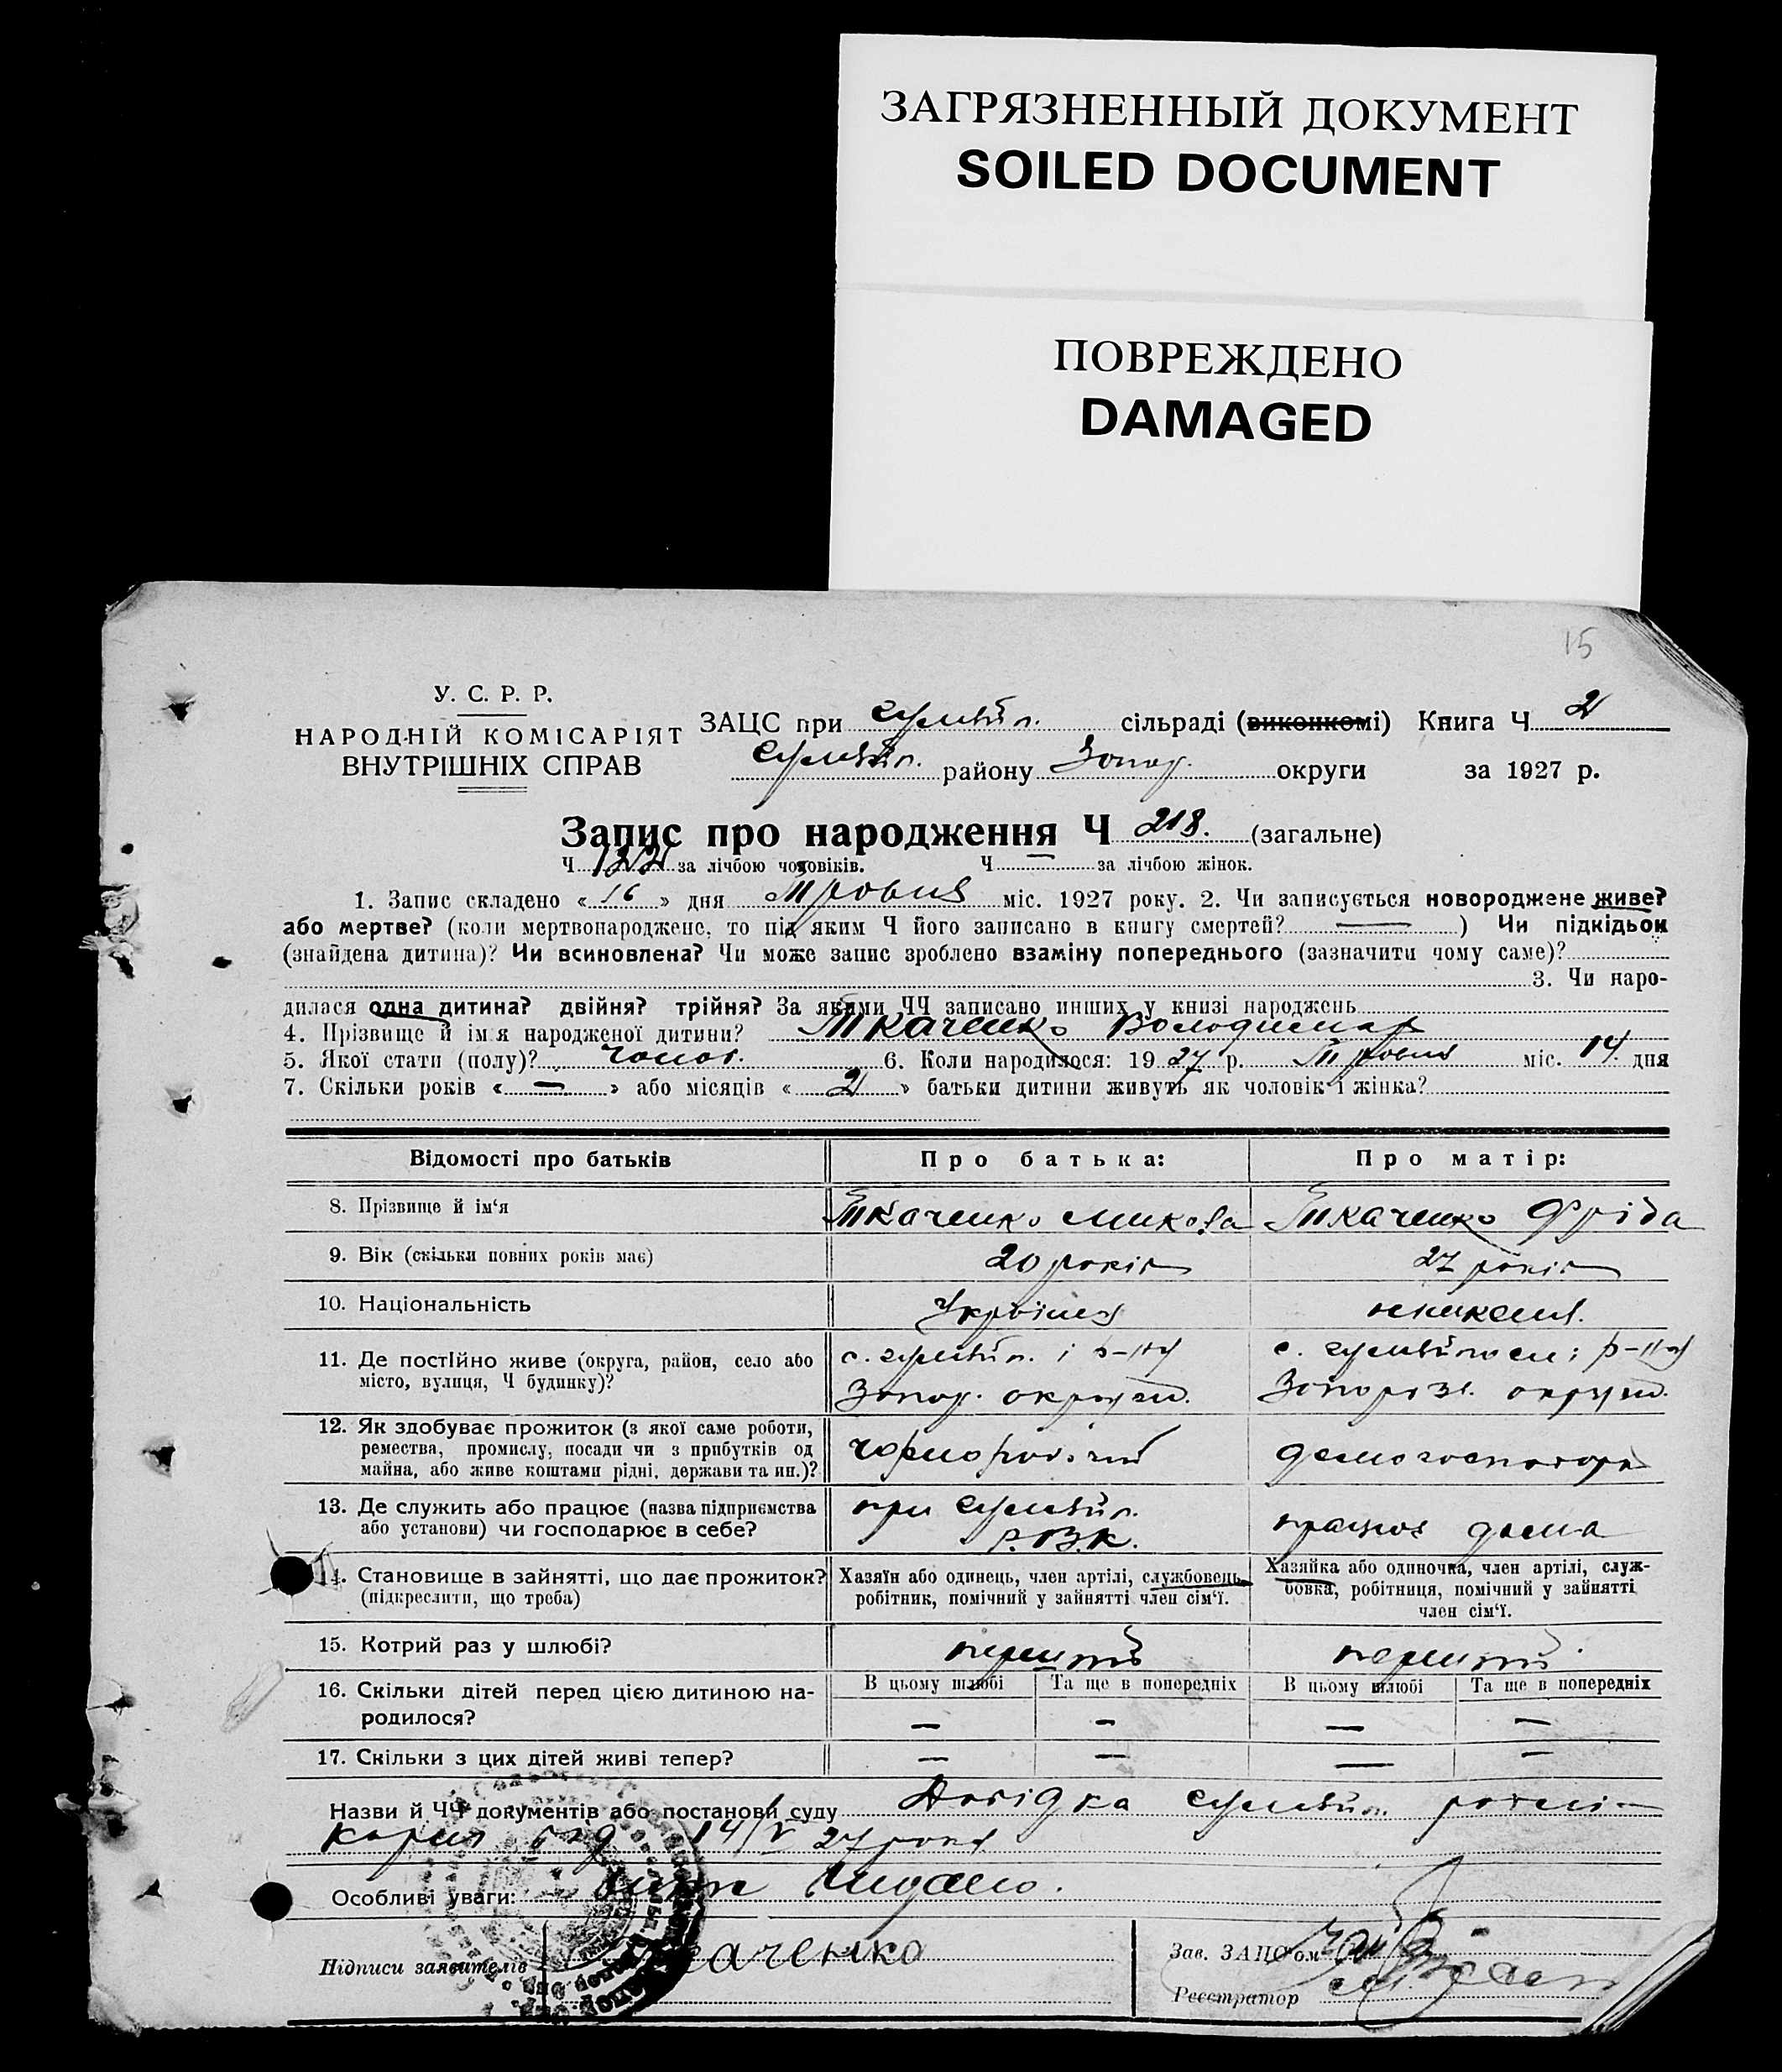 ЗАГРЯЗНЕННЫЙ ДОКУМЕНТ
SOILED DOCUMENT
ПОВРЕЖДЕНО
DAMAGED
15
У. С. Р. Р.
НАРОДНІЙ КОМІСАРІЯТ
ВНУТРІШНІХ СПРАВ
ЗАЦС при Гуляйп. сільраді (виконкомі) Книга Ч 2
Гуляйп. району Запор. округи за 1927 р.
Запис про народження Ч 218. (загальне)
Ч 122 за лічбою чоловіків. Ч — за лічбою жінок.
1. Запис складено « 16 » дня Травня міс. 1927 року. 2. Чи записується новороджене живе?
або мертве? (коли мертвонароджене, то під яким Ч його записано в книгу смертей? — ) Чи підкідьок
(знайдена дитина)? Чи всиновлена? Чи може запис зроблено взаміну попереднього (зазначити чому саме)?
3. Чи наро-
дилася одна дитина? двійня? трійня? За якими ЧЧ записано инших у книзі народжень
4. Прізвище й ім'я народженої дитини? Ткаченко Володимир
5. Якої стати (полу)? чолов. 6. Коли народилося: 1927 р. Травня міс. 14 дня
7. Скільки років « — » або місяців « 2 » батьки дитини живуть як чоловік і жінка?
Відомості про батьків Про батька: Про матір:
8. Прізвище й ім'я Ткаченко Микола Ткаченко Фріда
9. Вік (скільки повних років має) 20 років 27 років
10. Національність Україн.
11. Де постійно живе (округа, район, село або
місто, вулиця, Ч будинку)?
с. Гуляйп. і р-ну
Запор. округи.
с. Гуляйполе і р-ну
Запорізь. округи.
12. Як здобуває прожиток (з якої саме роботи,
ремества, промислу, посади чи з прибутків од
майна, або живе коштами рідні, держави та ин.)?
чорноробочий
домогосподарка
13. Де служить або працює (назва підприємства
або установи) чи господарює в себе?
при Гуляйп.
Р.В.К.
працює дома
14. Становище в зайнятті, що дає прожиток?
(підкреслити, що треба)
Хазяїн або одинець, член артілі, службовець,
робітник, помічний у зайнятті член сім'ї.
Хазяйка або одиночка, член артілі, служ-
бовка, робітниця, помічний у зайнятті
член сім'ї.
15. Котрий раз у шлюбі? перший перший
16. Скільки дітей перед цією дитиною на-
родилося?
В цьому шлюбі Та ще в попередніх В цьому шлюбі Та ще в попередніх
— — — —
17. Скільки з цих дітей живі тепер? — — — —
Назви й ЧЧ документів або постанови суду Довідка Гуляйп.
від 14/V 27 року
Особливі уваги: видано.
Підписи заявителів Ткаченко
Зав. ЗАЦС'ом
Реєстратор